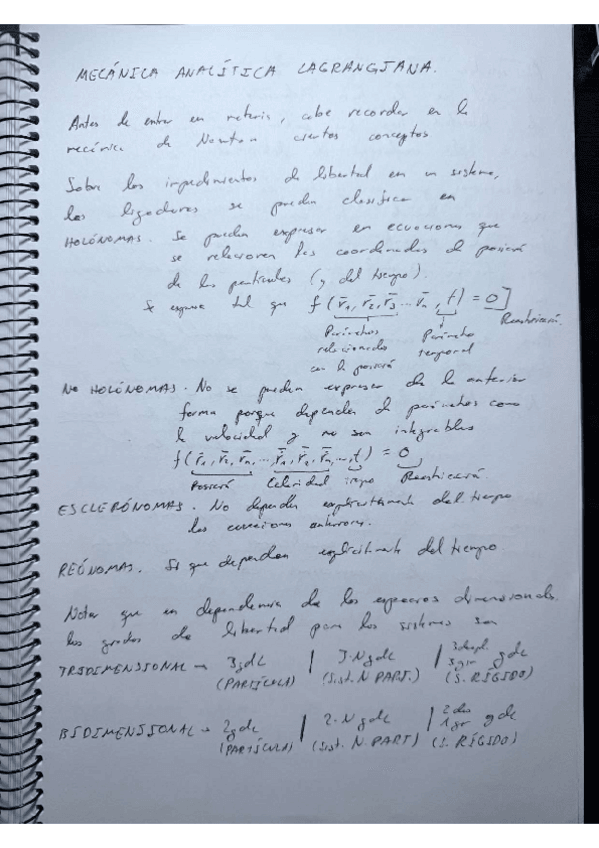 MECÁNICA ANALÍTICA LAGRANGIANA.
Antes de entrar en materia, cabe recordar en la
mecánica de Newton ciertos conceptos
Sobre los impedimentos de libertad en un sistema,
las ligaduras se pueden clasificar en
HOLÓNOMAS. Se pueden expresar en ecuaciones que
se relacionen las coordenadas de posición
de las partículas (y del tiempo).
Se expresa tal que f(r̄₁, r̄₂, r̄₃ ... r̄ₙ, t) = 0] Restricción.
Parámetros Parámetro
relacionados temporal
con la posición
NO HOLÓNOMAS. No se pueden expresar de la anterior
forma porque dependen de parámetros como
la velocidad y no son integrables
f(r̄₁, r̄₂, r̄ₙ, ..., ṙ̄₁, ṙ̄₂, ṙ̄ₙ, ... t) = 0
Posición Celeridad tiempo Restricción
ESCLERÓNOMAS. No dependen explícitamente del tiempo
las ecuaciones anteriores.
REÓNOMAS. Sí que dependen explícitamente del tiempo
Notar que en dependencia de los espacios dimensionales
los grados de libertad para los sistemas son
TRIDIMENSIONAL → 3gdl | 3·N gdl | 3 despl. 3 gir gdl
(PARTÍCULA) (Sist. N PART.) (S. RÍGIDO)
BIDIMENSIONAL → 2gdl | 2·N gdl | 2 des 1 gir gdl
(PARTÍCULA) (Sist. N. PART) (S. RÍGIDO)